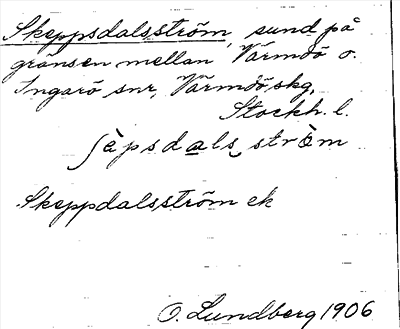 Skeppsdalsström, sund på
gränsen mellan Värmdö o.
Ingarö snr, Värmdö skg,
Stockh. l.
ʃèpsdals ström
Skeppdalsström ek
O. Lundberg 1906